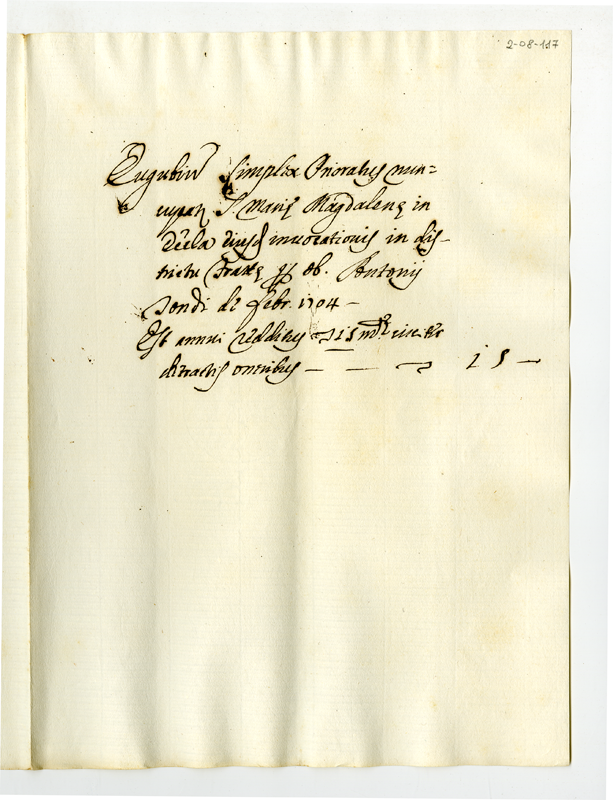 2-08-117
Eugubin simplex Prioratus nun=
cupatꝫ S. Marię Magdalenę in
Eccla eiusd invocationis in dis-
trictu Frattę ꝑ ob. Antonij
Sondi de febr. 1704 -
Est annui redditus 15 mtę
detractis oneribus — — 15 —